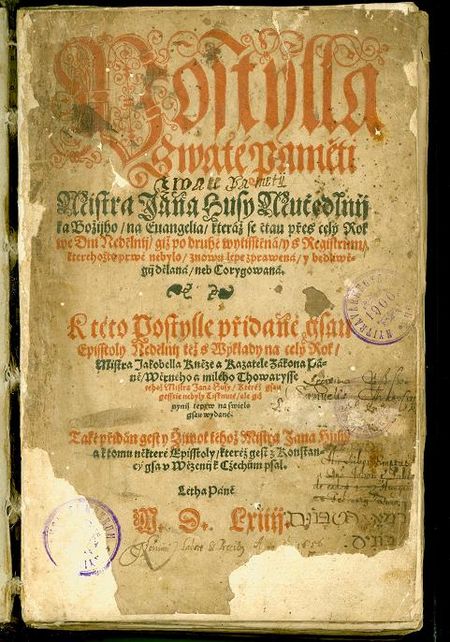 Postylla
Swaté Paměti
Swaté Paměti
Mistra Jana Husy Mučedlnij
ka Božijho / na Euangelia / kteráž se čtau přes celý Rok
we Dni Nedělnij / giž po druhé wytisstěná / y s Registrum /
kteréhožto prwé nebylo / znowu lépe zprawená / y
gij dělaná / neb Corygowaná.
K této Postylle přidané gsau
Episstoly Nedělnij též s Wýklady na celý Rok /
Mistra Jakobella Kněze a Kazatele Zákona Pá=
ně / Wěrného a milého Thowarysse
téhož Mistra Jana Husy / Kteréž gsau
gesstie nebyly Tisknuté / ale giž
nynij teprw na swětlo
gsau wydané.
Také přidán gest y Žiwot téhož Mistra Jana Husy
a k tomu některé Episstoly / kteréž gest z Konstan=
cý gsa w Wězenij k Čechům psal.
Létha Páně
M. D. Lxiiij.